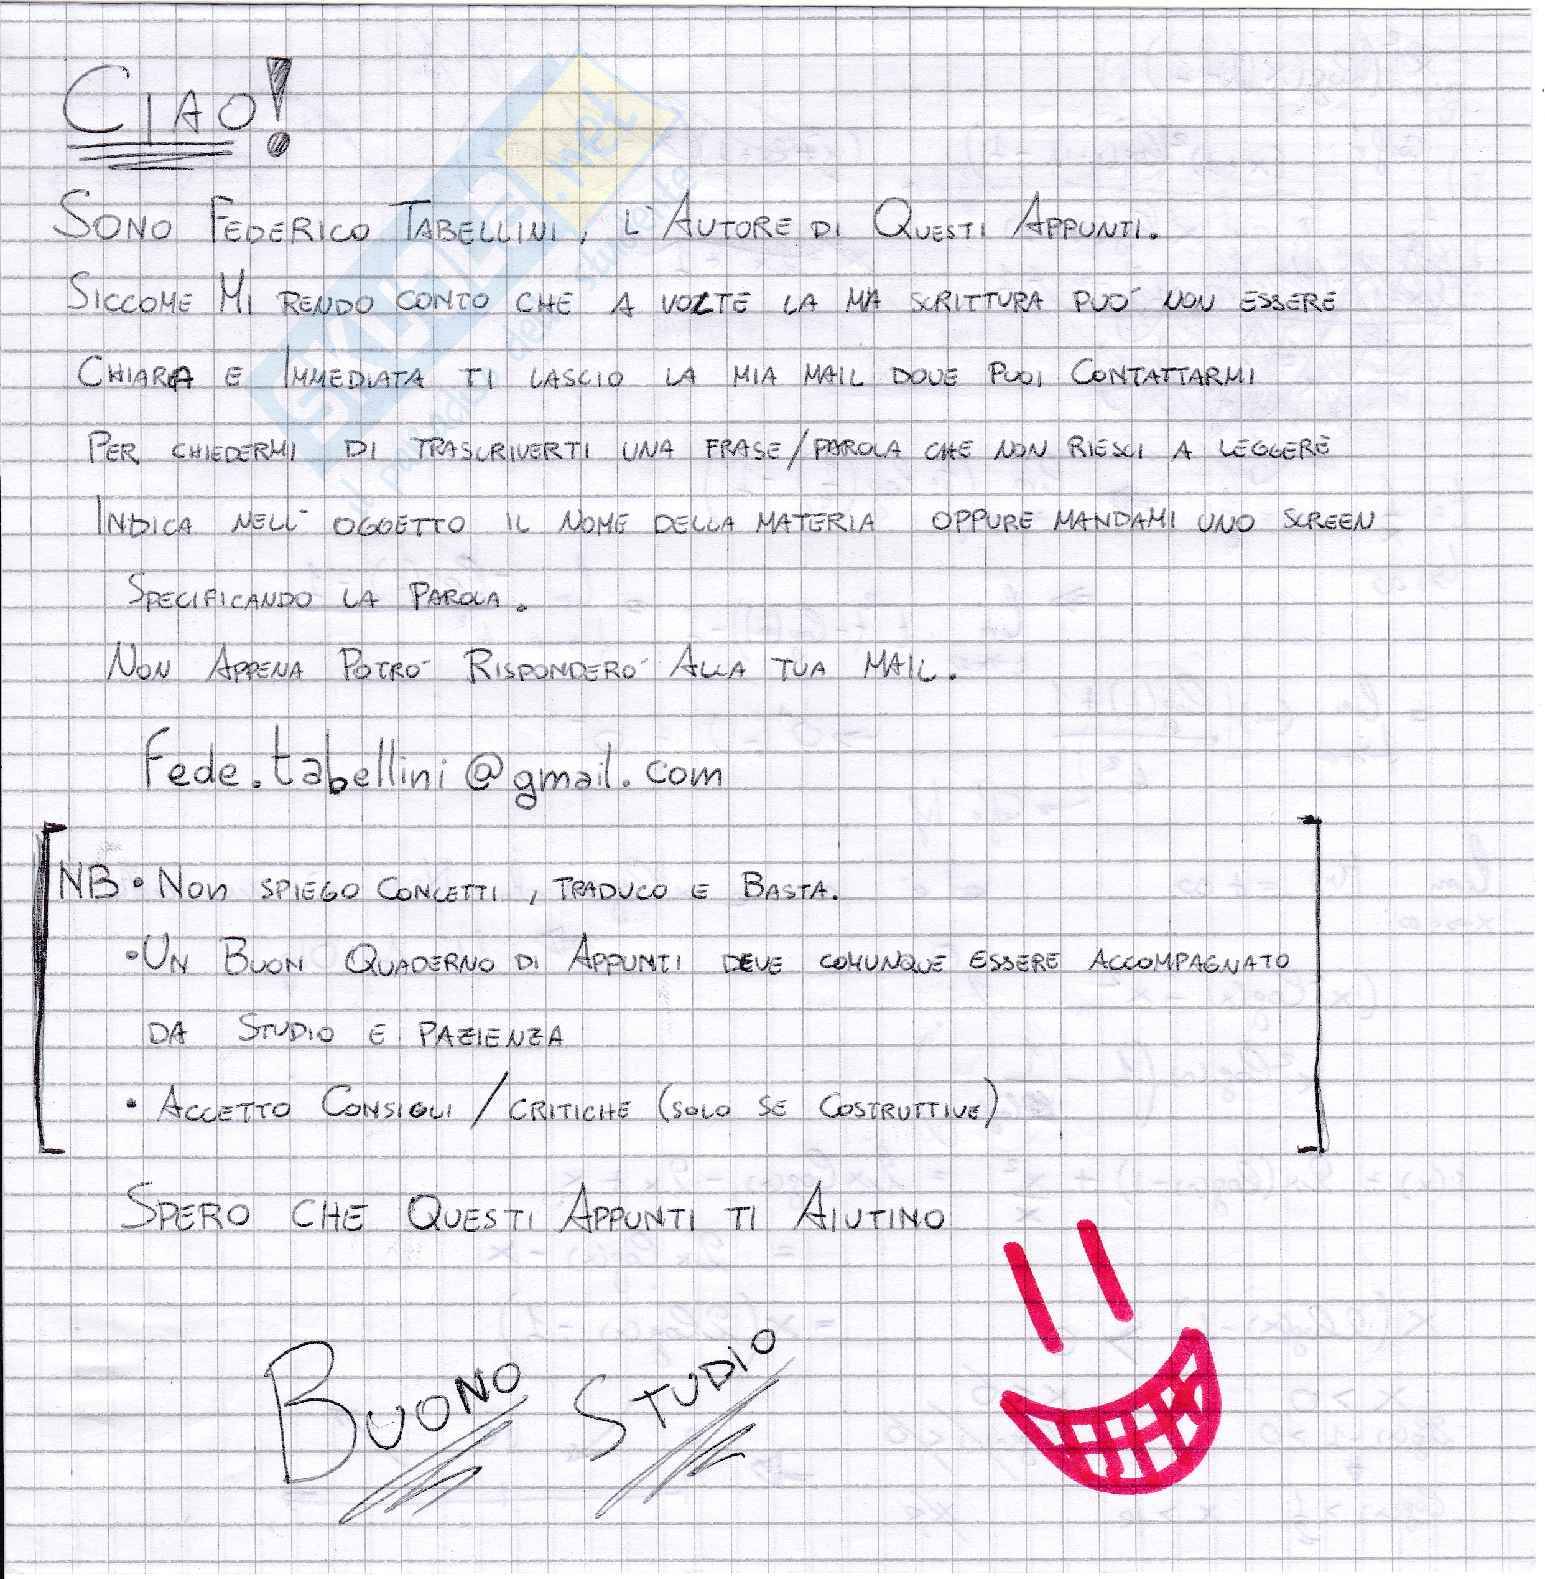 CIAO!
SONO FEDERICO TABELLINI, L'AUTORE DI QUESTI APPUNTI.
SICCOME MI RENDO CONTO CHE A VOLTE LA MIA SCRITTURA PUO' NON ESSERE
CHIARA E IMMEDIATA TI LASCIO LA MIA MAIL DOVE PUOI CONTATTARMI
PER CHIEDERMI DI TRASCRIVERTI UNA FRASE/PAROLA CHE NON RIESCI A LEGGERE
INDICA NELL'OGGETTO IL NOME DELLA MATERIA OPPURE MANDAMI UNO SCREEN
SPECIFICANDO LA PAROLA.
NON APPENA POTRO' RISPONDERO' ALLA TUA MAIL.
Fede.tabellini@gmail.com
NB • NON SPIEGO CONCETTI, TRADUCO E BASTA.
• UN BUON QUADERNO DI APPUNTI DEVE COMUNQUE ESSERE ACCOMPAGNATO
DA STUDIO E PAZIENZA
• ACCETTO CONSIGLI / CRITICHE (SOLO SE COSTRUTTIVE)
SPERO CHE QUESTI APPUNTI TI AIUTINO
BUONO STUDIO
SKUOLA.net